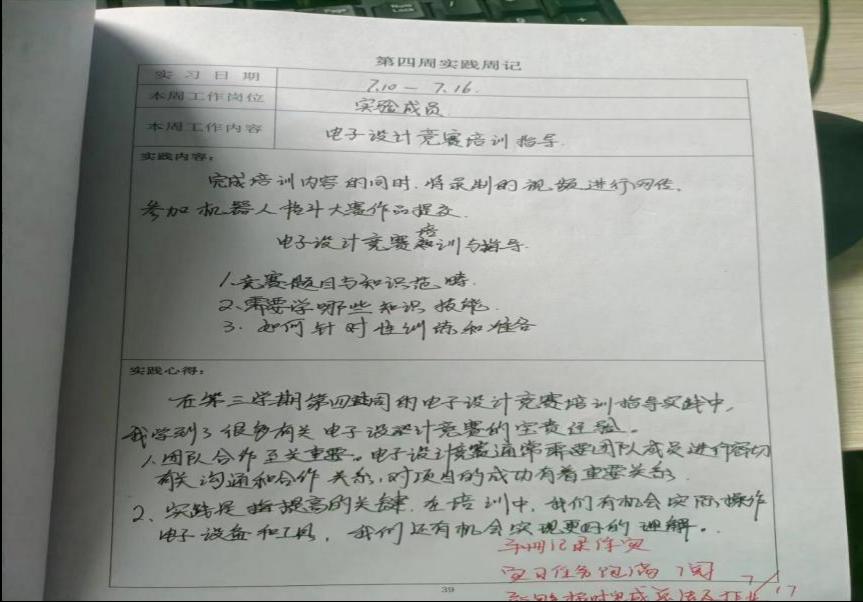 第四周实践周记
实习日期 7.10 — 7.16.
本周工作岗位 实验成员
本周工作内容 电子设计竞赛培训指导.
实践内容:
完成培训内容的同时.将录制的视频进行网传.
参加机器人格斗大赛作品提交.
电子设计竞赛培训与指导.
1.竞赛题目与知识范畴.
2.需要学哪些知识技能.
3. 如何针对性训练和准备
实践心得:
在第三学期第四周的电子设计竞赛培训指导实践中,
我学到了很多有关电子设计竞赛的宝贵经验。
1.团队合作至关重要。电子设计竞赛通常需要团队成员进行密切
有关沟通和合作关系,对项目的成功有着重要关系.
2、实践是提高的关键.在培训中,我们有机会实际操作
电子设备和工具,我们还有机会实现更好的理解。.
手册记录详实
实习任务饱满
7/17
39